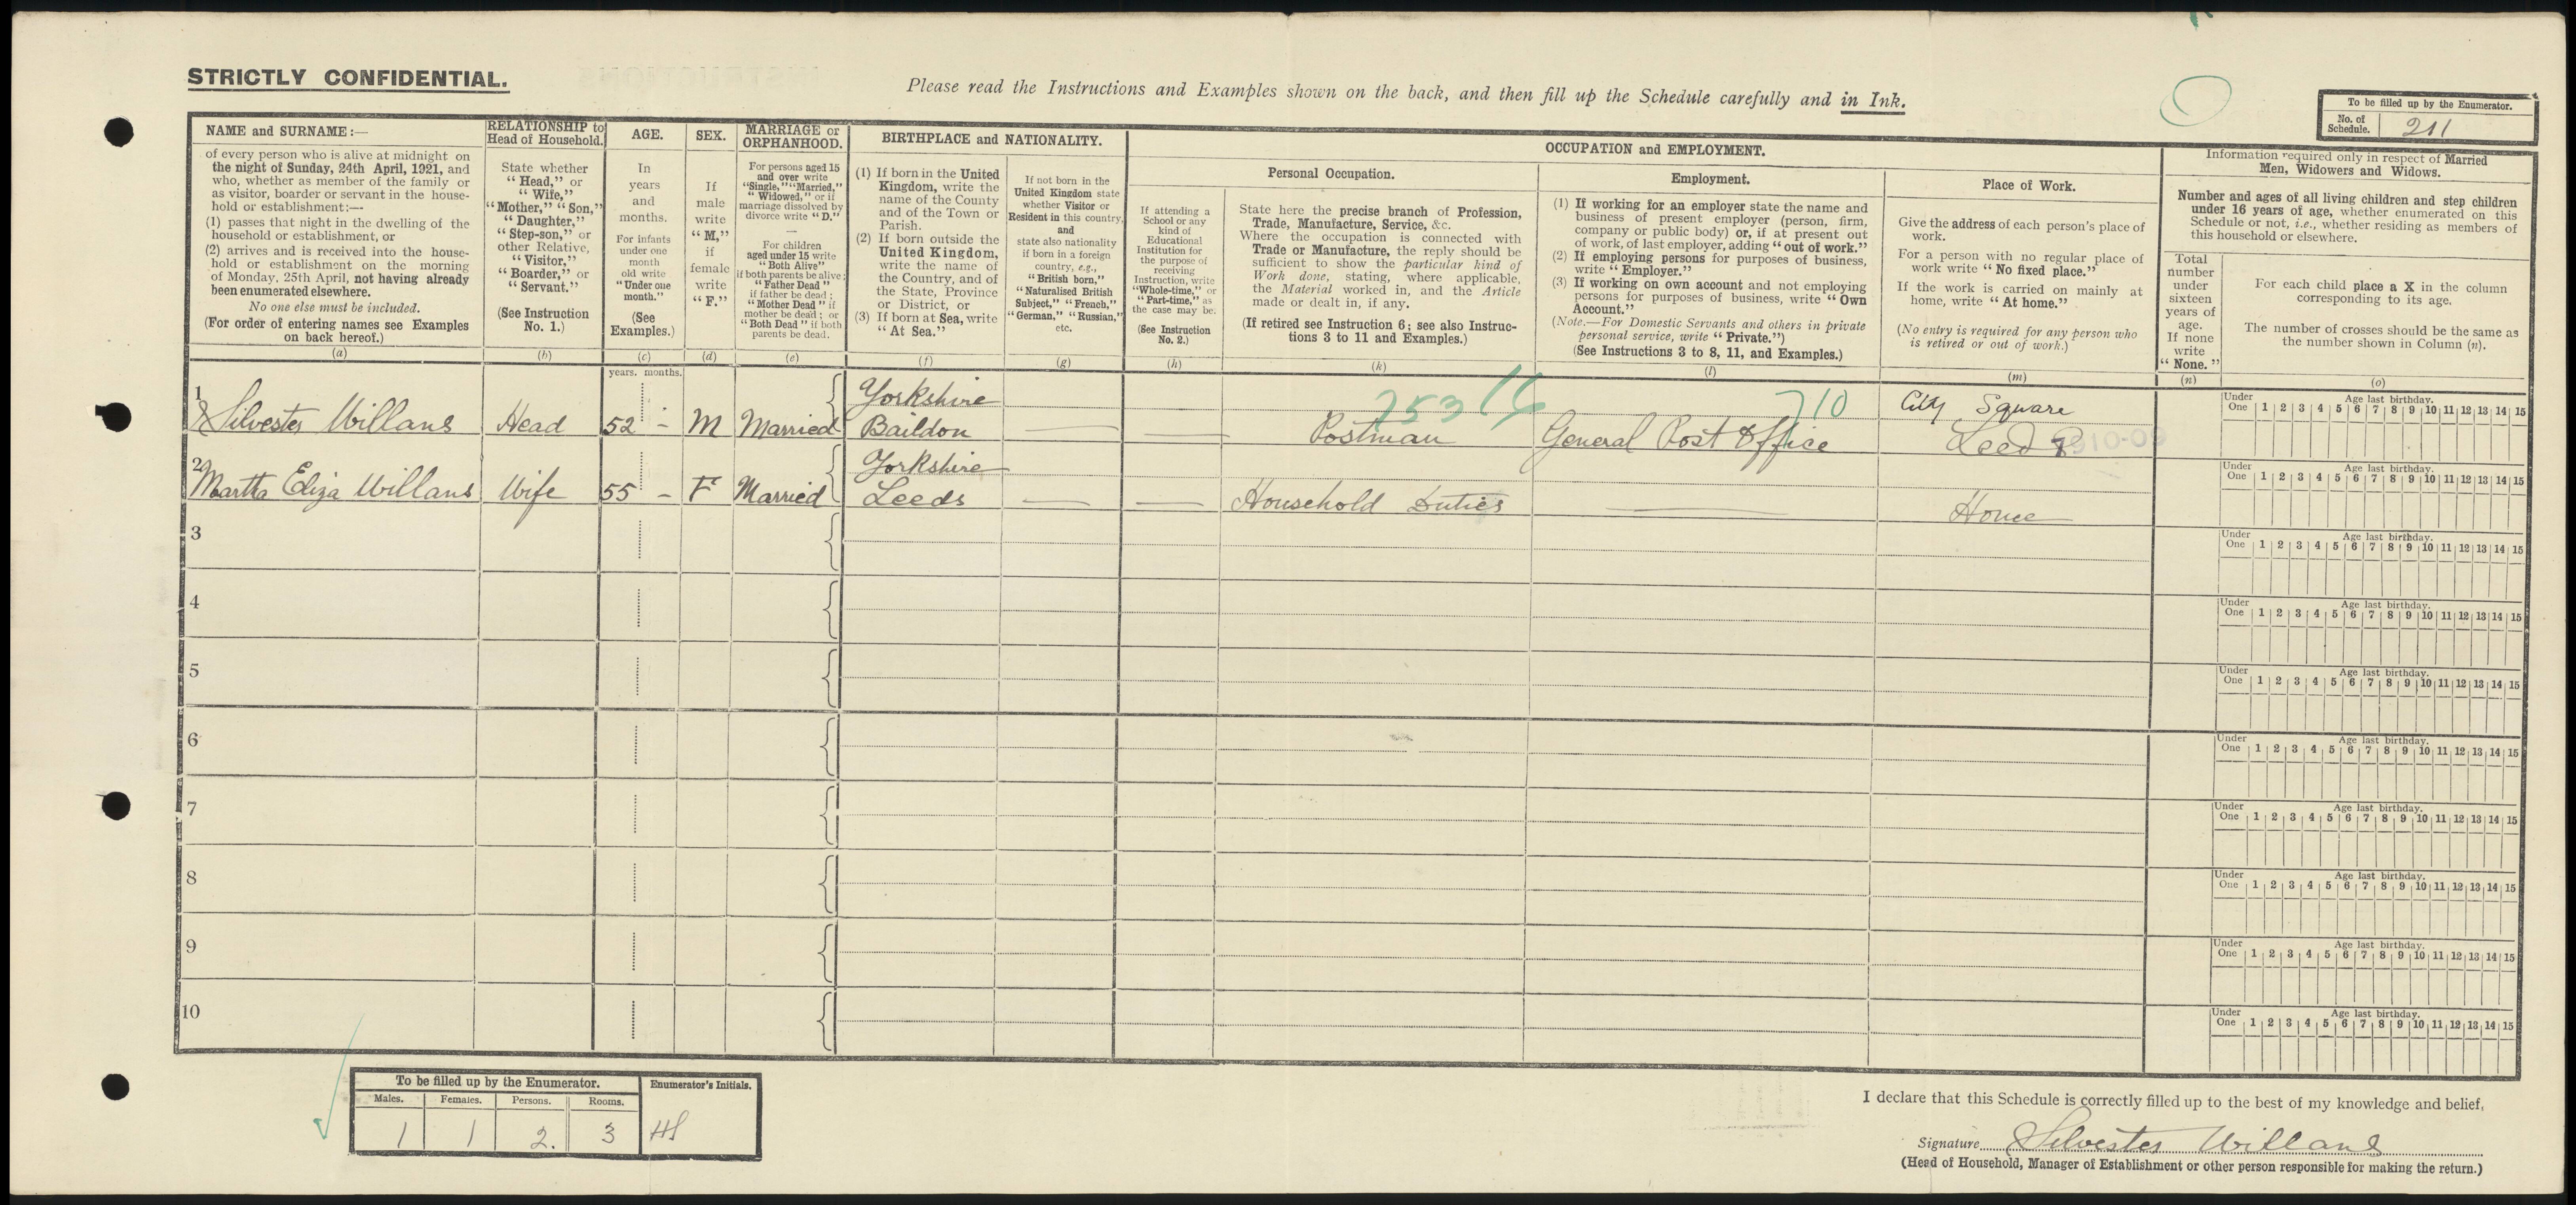 STRICTLY CONFIDENTIAL.
Please read the Instructions and Examples shown on the back, and then fill up the Schedule carefully and in Ink.
To be filled up by the Enumerator.
No. of Schedule. 211
NAME and SURNAME:—
of every person who is alive at midnight on
the night of Sunday, 24th April, 1921, and
who, whether as member of the family or
as visitor, boarder or servant in the house-
hold or establishment:—
(1) passes that night in the dwelling of the
household or establishment, or
(2) arrives and is received into the house-
hold or establishment on the morning
of Monday, 25th April, not having already
been enumerated elsewhere.
No one else must be included.
(For order of entering names see Examples
on back hereof.)
(a)
RELATIONSHIP to
Head of Household.
State whether
"Head," or
"Wife,"
"Mother," "Son,"
"Daughter,"
"Step-son," or
other Relative,
"Visitor,"
"Boarder," or
"Servant."
(See Instruction
No. 1.)
(b)
AGE.
In
years
and
months.
For infants
under one
month
old write
"Under one
month."
(See
Examples.)
(c)
SEX.
If
male
write
"M,"
if
female
write
"F."
(d)
MARRIAGE or
ORPHANHOOD.
For persons aged 15
and over write
"Single," "Married,"
"Widowed," or if
marriage dissolved by
divorce write "D."
—
For children
aged under 15 write
"Both Alive"
if both parents be alive;
"Father Dead"
if father be dead;
"Mother Dead" if
mother be dead; or
"Both Dead" if both
parents be dead.
(e)
BIRTHPLACE and NATIONALITY.
(1) If born in the United
Kingdom, write the
name of the County
and of the Town or
Parish.
(2) If born outside the
United Kingdom,
write the name of
the Country, and of
the State, Province
or District, or
(3) If born at Sea, write
"At Sea."
(f)
If not born in the
United Kingdom state
whether Visitor or
Resident in this country,
and
state also nationality
if born in a foreign
country, e.g.,
"British born,"
"Naturalised British
Subject," "French,"
"German," "Russian,"
etc.
(g)
OCCUPATION and EMPLOYMENT.
If attending a
School or any
kind of
Educational
Institution for
the purpose of
receiving
Instruction, write
"Whole-time," or
"Part-time," as
the case may be.
(See Instruction
No. 2.)
(h)
Personal Occupation.
State here the precise branch of Profession,
Trade, Manufacture, Service, &c.
Where the occupation is connected with
Trade or Manufacture, the reply should be
sufficient to show the particular kind of
Work done, stating, where applicable,
the Material worked in, and the Article
made or dealt in, if any.
(If retired see Instruction 6; see also Instruc-
tions 3 to 11 and Examples.)
(k)
Employment.
(1) If working for an employer state the name and
business of present employer (person, firm,
company or public body) or, if at present out
of work, of last employer, adding "out of work."
(2) If employing persons for purposes of business,
write "Employer."
(3) If working on own account and not employing
persons for purposes of business, write "Own
Account."
(Note.—For Domestic Servants and others in private
personal service, write "Private.")
(See Instructions 3 to 8, 11, and Examples.)
(l)
Place of Work.
Give the address of each person's place of
work.
For a person with no regular place of
work write "No fixed place."
If the work is carried on mainly at
home, write "At home."
(No entry is required for any person who
is retired or out of work.)
(m)
Information required only in respect of Married
Men, Widowers and Widows.
Number and ages of all living children and step children
under 16 years of age, whether enumerated on this
Schedule or not, i.e., whether residing as members of
this household or elsewhere.
Total
number
under
sixteen
years of
age.
If none
write
"None."
(n)
For each child place a X in the column
corresponding to its age.
The number of crosses should be the same as
the number shown in Column (n).
(o)
years. months.
1 Silvester Willans Head 52 - M Married Yorkshire Baildon — — Postman General Post Office City Square Leeds
753 710
2 Martha Eliza Willans Wife 55 - F Married Yorkshire Leeds — — Household Duties — Home
3
4
5
6
7
8
9
10
Under One Age last birthday. 1 2 3 4 5 6 7 8 9 10 11 12 13 14 15
Under One Age last birthday. 1 2 3 4 5 6 7 8 9 10 11 12 13 14 15
Under One Age last birthday. 1 2 3 4 5 6 7 8 9 10 11 12 13 14 15
Under One Age last birthday. 1 2 3 4 5 6 7 8 9 10 11 12 13 14 15
Under One Age last birthday. 1 2 3 4 5 6 7 8 9 10 11 12 13 14 15
Under One Age last birthday. 1 2 3 4 5 6 7 8 9 10 11 12 13 14 15
Under One Age last birthday. 1 2 3 4 5 6 7 8 9 10 11 12 13 14 15
Under One Age last birthday. 1 2 3 4 5 6 7 8 9 10 11 12 13 14 15
Under One Age last birthday. 1 2 3 4 5 6 7 8 9 10 11 12 13 14 15
Under One Age last birthday. 1 2 3 4 5 6 7 8 9 10 11 12 13 14 15
To be filled up by the Enumerator.
Enumerator's Initials.
Males. Females. Persons. Rooms.
1 1 2. 3
I declare that this Schedule is correctly filled up to the best of my knowledge and belief,
Signature Silvester Willans
(Head of Household, Manager of Establishment or other person responsible for making the return.)